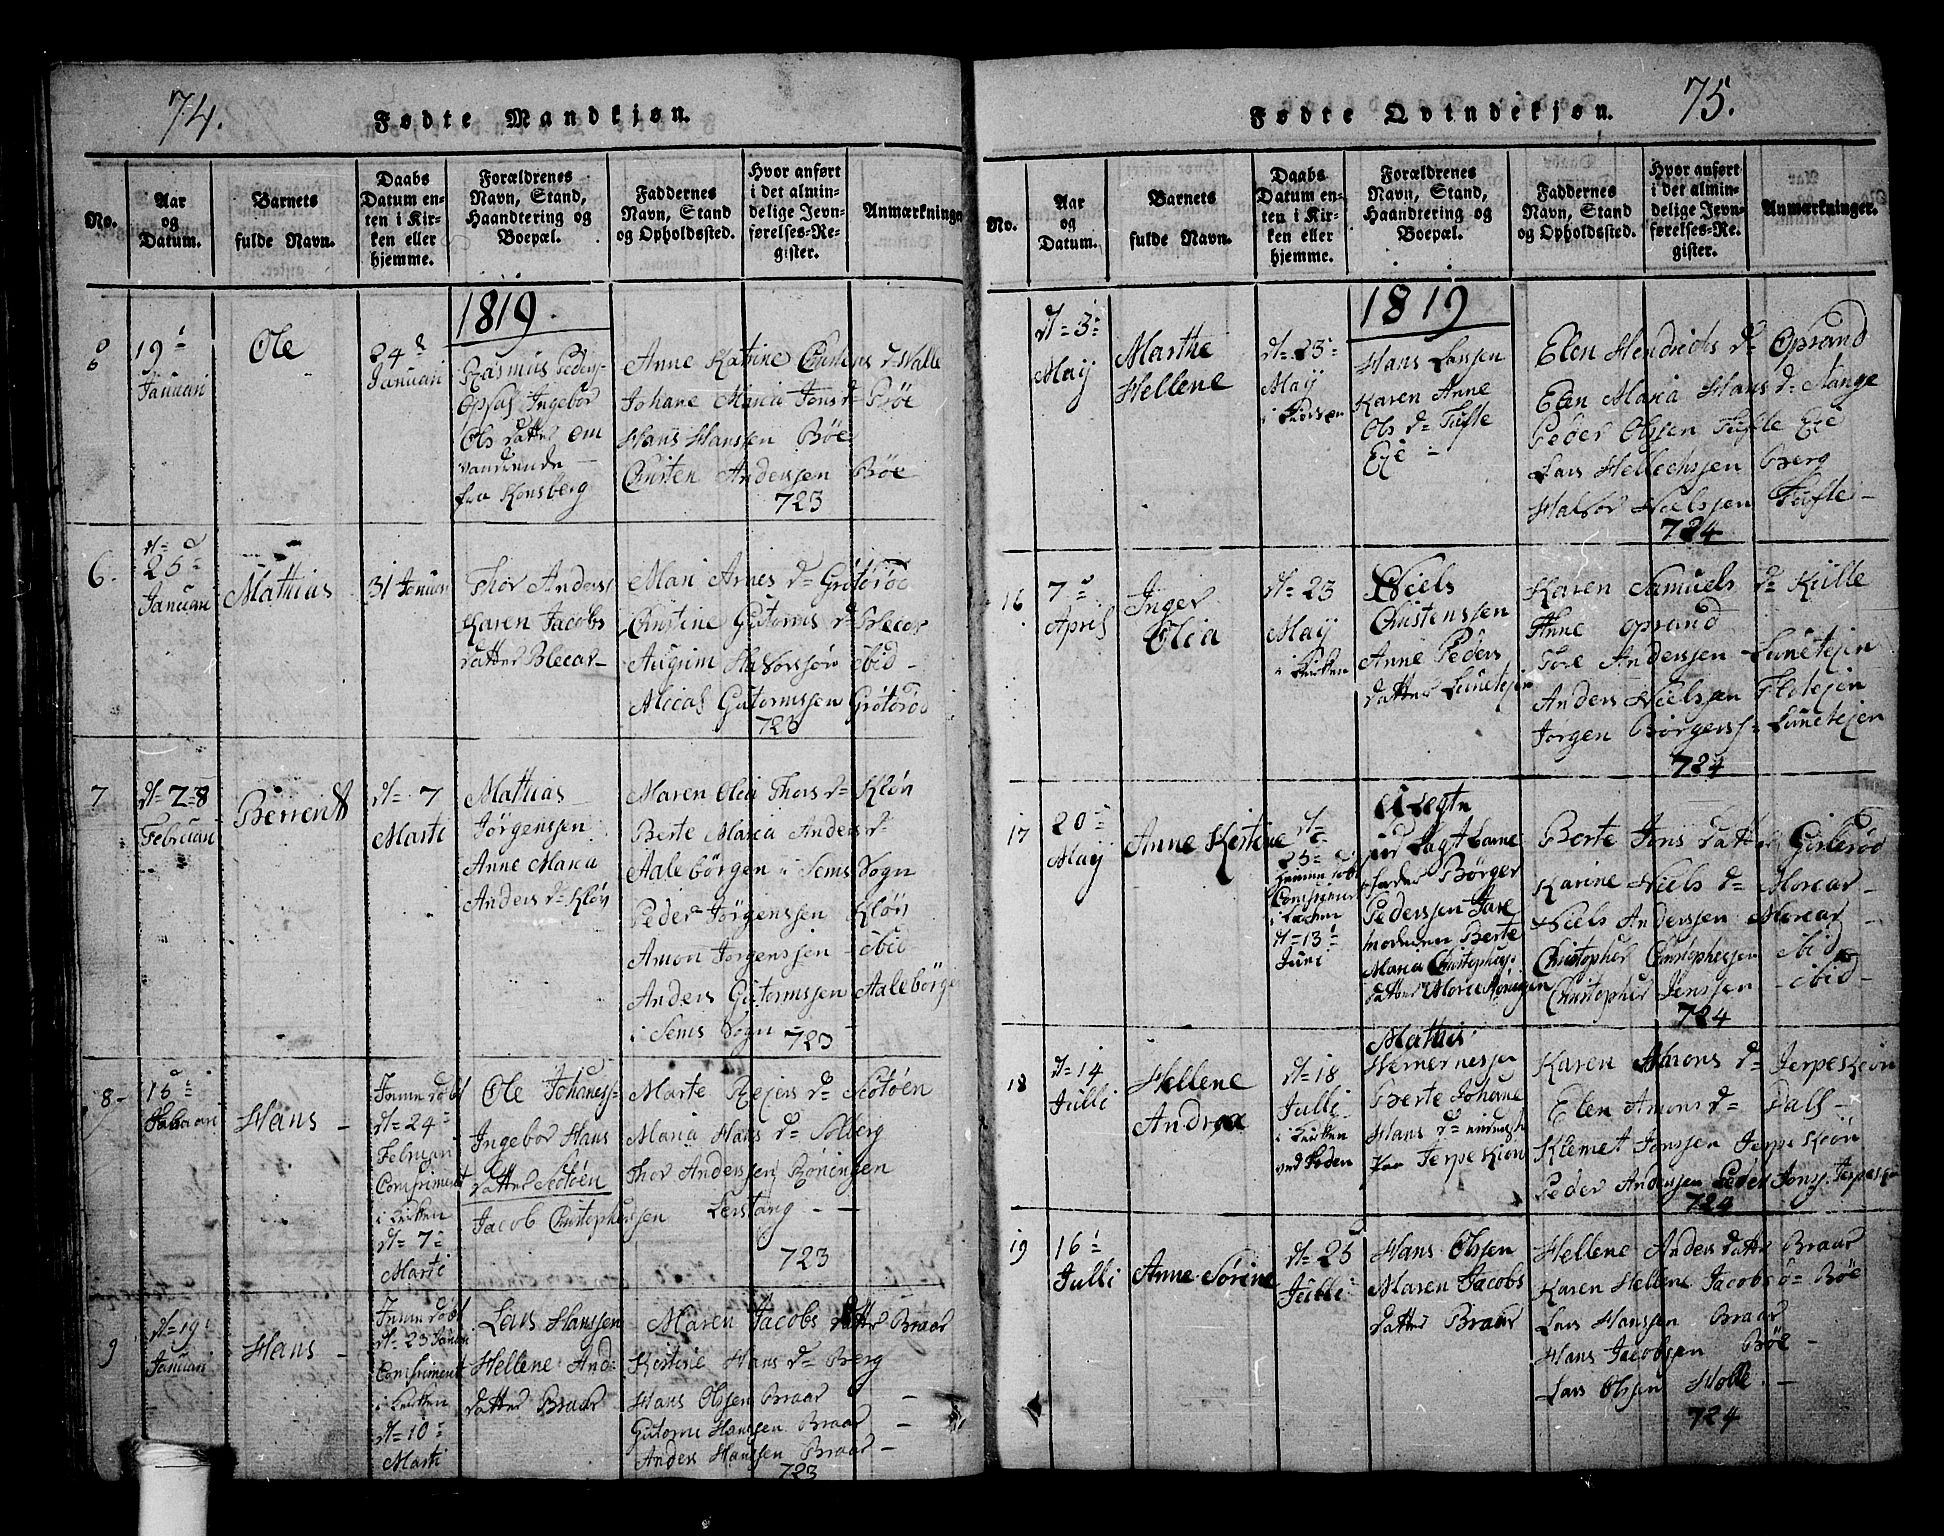 74.
Fødte Mandkjøn.
No.
Aar
og
Datum.
Barnets
fulde Navn.
Daabs
Datum en-
ten i Kir-
ken eller
hjemme.
Forældrenes
Navn, Stand,
Haandtering og
Boepæl.
Faddernes
Navn, Stand
og Opholdssted.
Hvor anført
i det almin-
delige Jevn-
førelses-Re-
gister.
Anmærkninger
1819.
19
Januari
Ole
24
Januari
Rasmus Peders
Ingebor
Ols datter om
vandrende
fra Konsberg
Anne Katrine Christens d= Walle
Johane Maria Jons d= Bøe
Hans Hanssen Bøe
Christen Anderssen Bøe
723
6.
d=
25
Januari
Mathias
31 Januari
Thor Anders
Karen Jacobs
datter Blecar
Mari Arnes d= Grøtørød
Christine Gutorms d= Blecar
Halvorssøn ibid
Gutormssen Grøtørød
723
7
d= 28
Februari
Berrent
d= 7
Marti
Mathias
Jørgenssen
Anne Maria
Anders d= Kløn
Maren Olea Thors d= Kløn
Berte Maria Anders d=
Aalebørgen i Sems Sogn
Peder Jørgenssen Kløn
Amon Jørgenssen ibid
Anders Gutormssen Aalebørge
i Sems Sogn
723
8
15
Februari
Hans
d= 24
Februari
i Kirken
d= 7
Marti
Ole Johaness
Ingebor Hans
datter Scotøen
Jacob Christophersen
Marte Rejers d= Scotøen
Maria Hans d= Solberg
Thor Anderssen Rønningen
Lerstang
723
9
d= 19
Januari
Hans
d= 23
i Kirken
d= 10
Marti
Lars Hanssen
Hellene And
datter Braar
Maren Jacobs datter Braar
Kerstine Hans d= Berg
Hans Olssen Braar
Gutorm Hanssen Braar
Anders Hanssen Braar
723
75.
Fødte Qvindekjøn.
No.
Aar
og
Datum.
Barnets
fulde Navn.
Daabs
Datum en-
ten i Kir-
ken eller
hjemme.
Forældrenes
Navn, Stand,
Haandtering og
Boepæl.
Faddernes
Navn, Stand
og Opholdssted.
Hvor anført
i det almin-
delige Jevn-
førelses-Re-
gister.
Anmærkninger.
1819
d= 3
May
Marthe
Hellene
d= 23
May
i Kirken
Hans Larsen
Karen Anne
Ols d= Tufte
Eje
Elen Hendrichs d= Oprand
Elen Maria Hans d= Nange
Peder Olssen Tufte Eje
Lars Hellechssen Berg
Halvor Nielssen Tufte
724
16
7
April
Inger
Olea
d= 23
May
i Kirken
Niels
Christenssen
Anne Peders
datter Lunetejen
Karen Samuels d= Kulle
Anne Oprand
Tore Anderssen Lunetejen
Anders Nielssen Flotejen
Jørgen Børgens Lunetejen
724
17
20
May
Anne Kerstine
d=
25
i Kirken
d= 13
Juni
Uægte
Børger
Pederssen
moderen Berte
Maria Christophers
datter
Berte Jons datter Gislerød
Karine Niels d= Morcar
Niels Anderssen Morcar
Christopher Christopherssen ibid
Christopher Jenssen ibid
724
18
d= 14
Julli
Hellene
Andrea
d= 18
Julli
i Kirken
Mathis
Wernernessen
Berte Johane
Hans d=
Jerpeskiøn
Karen Amons d= Jerpeskiøn
Elen Amons d= Dall
Klemet Jonssen Jerpeskiøn
Peder Anderssen Peder Jons. Jerpeskiøn
724
19
16
Julli
Anne Sørine
d= 25
Julli
Hans Olssen
Maren Jacobs
datter Braar
Hellene Anders datter Braar
Karen Hellene Jacobs d= Bøe
Lars Hanssen Braar
Hans Jacobsen Bøe
Lars Olssen Holle
724